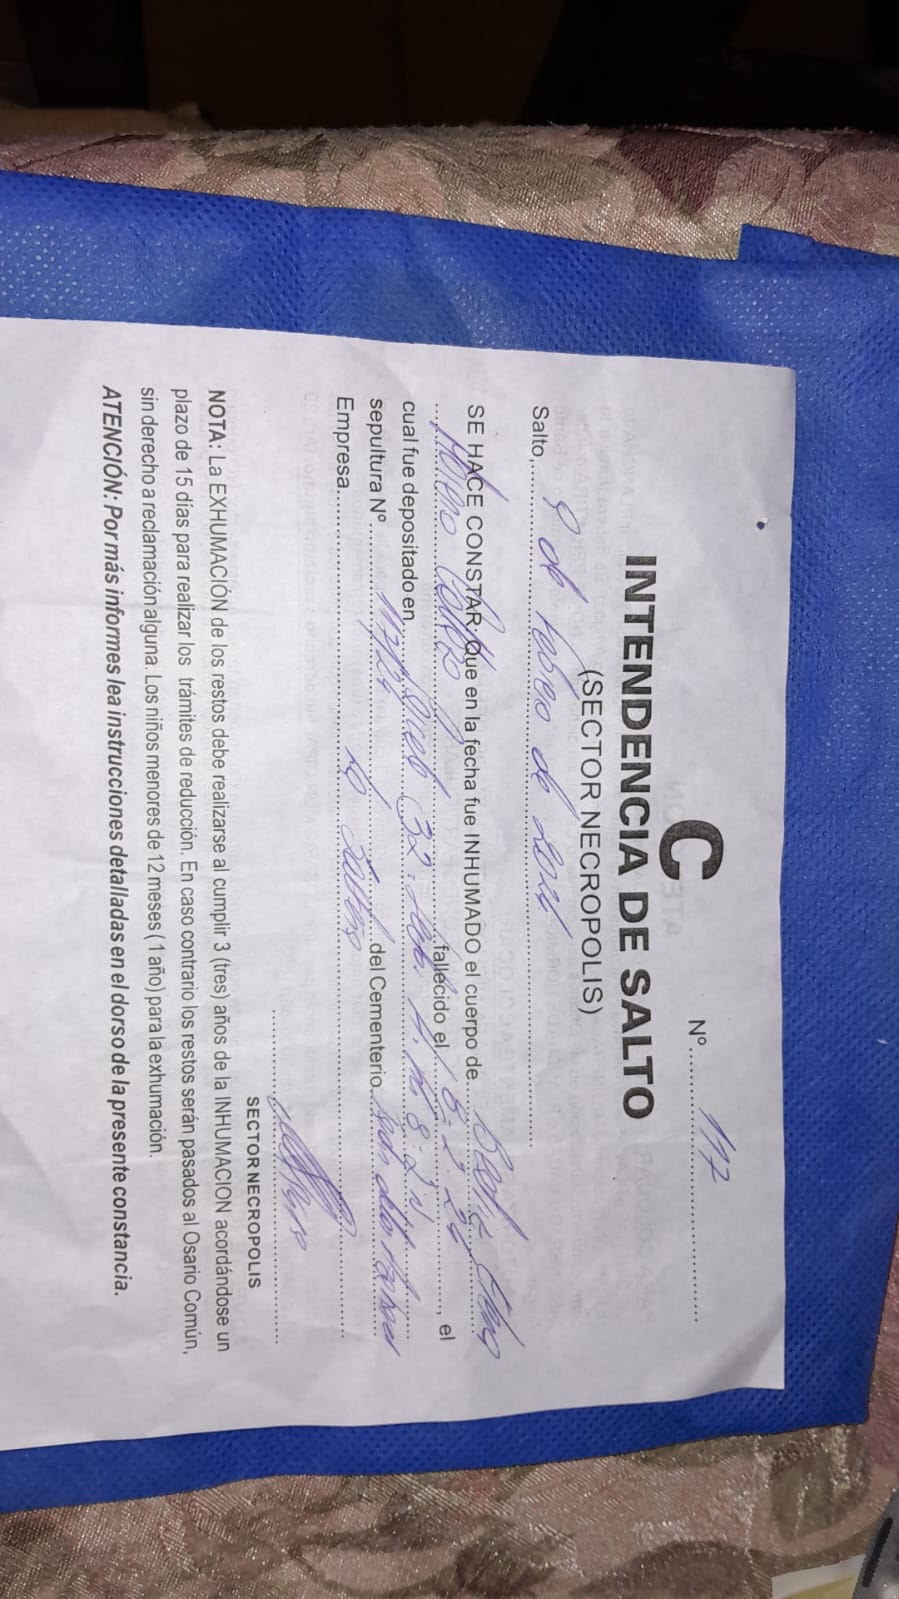 C
Nº 117
INTENDENCIA DE SALTO
(SECTOR NECROPOLIS)
Salto, 9 de febrero de 2024
SE HACE CONSTAR: Que en la fecha fue INHUMADO el cuerpo de
fallecido el 8-2-24, el
cual fue depositado en 32
sepultura Nº del Cementerio
Empresa
SECTOR NECROPOLIS
NOTA: La EXHUMACIÓN de los restos debe realizarse al cumplir 3 (tres) años de la INHUMACION acordándose un
plazo de 15 días para realizar los trámites de reducción. En caso contrario los restos serán pasados al Osario Común,
sin derecho a reclamación alguna. Los niños menores de 12 meses ( 1 año) para la exhumación.
ATENCIÓN: Por más informes lea instrucciones detalladas en el dorso de la presente constancia.